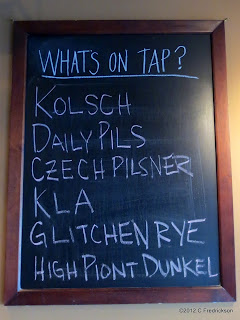 WHAT'S ON TAP?
KOLSCH
DAILY PILS
CZECH PILSNER
KLA
GLITCHEN RYE
HIGH PIONT DUNKEL
©2012 C Fredrickson